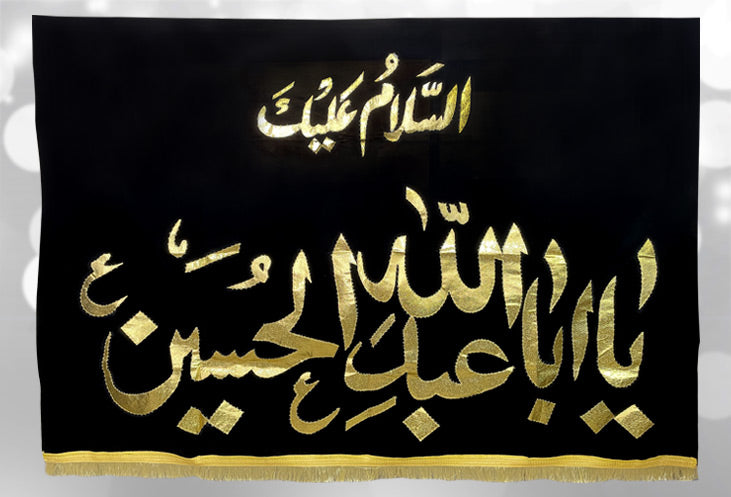 السَّلَامُ عَلَيْكَ
يا اَبا عَبدِ اللّٰه الحُسَین ع